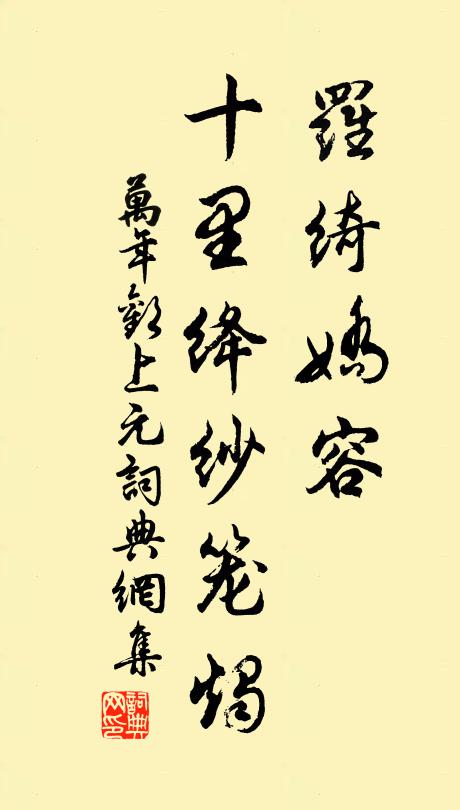 羅綺嬌容
十里絳紗笼燭
萬年歡上元詞典網集
詞典網印